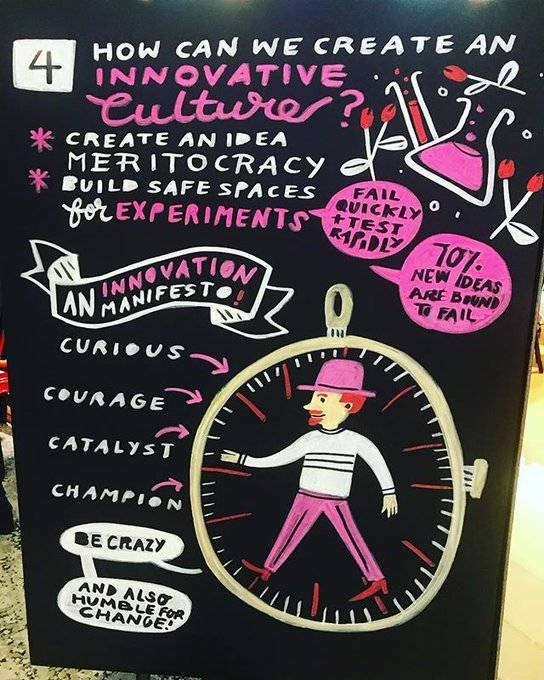 4
HOW CAN WE CREATE AN
INNOVATIVE
Culture?
* CREATE AN IDEA
MERITOCRACY
* BUILD SAFE SPACES
for EXPERIMENTS
FAIL
QUICKLY
+ TEST
RAPIDLY
70%
NEW IDEAS
ARE BOUND
TO FAIL
AN INNOVATION
MANIFESTO!
CURIOUS
COURAGE
CATALYST
CHAMPION
BE CRAZY
AND ALSO
HUMBLE FOR
CHANGE!